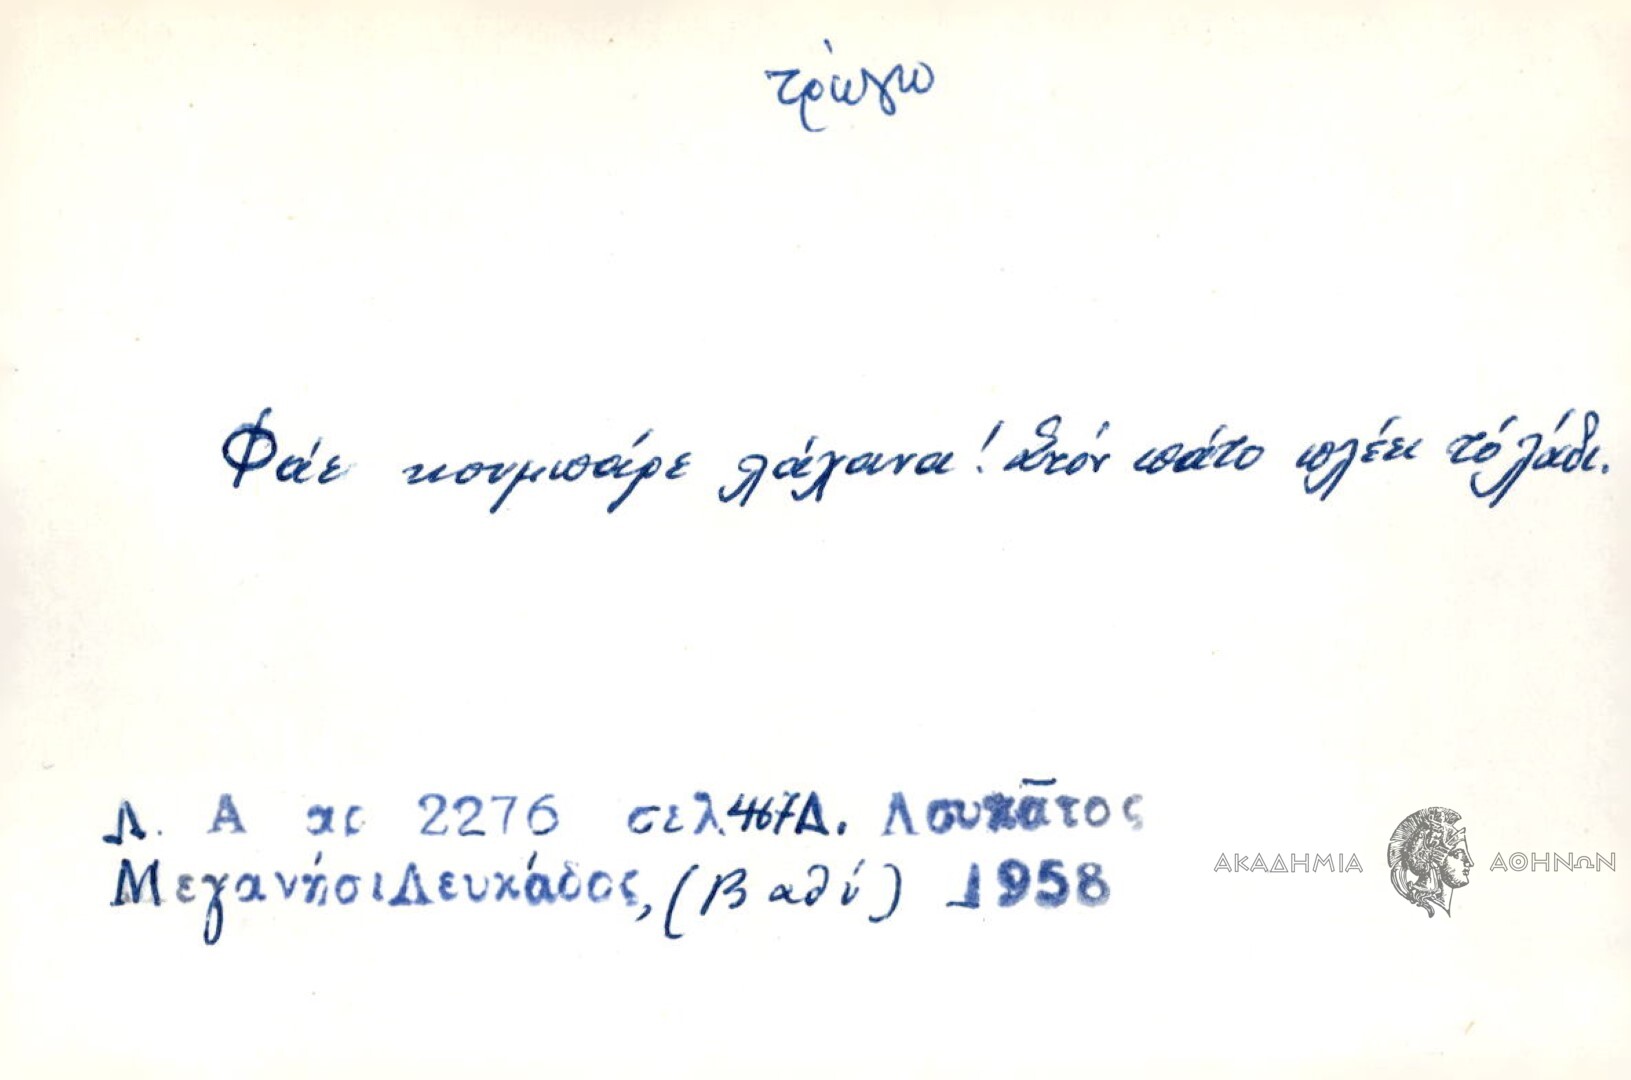 τρώγω
Φάε κουμπάρε λάχανα! Στόν πάτο πλέει τό λάδι.
Λ. Α ας 2276 σελ. 467 Δ. Λουκᾶτος
Μεγανήσι Λευκάδος, (Βαθύ) 1958
ΑΚΑΔΗΜΙΑ ΑΘΗΝΩΝ